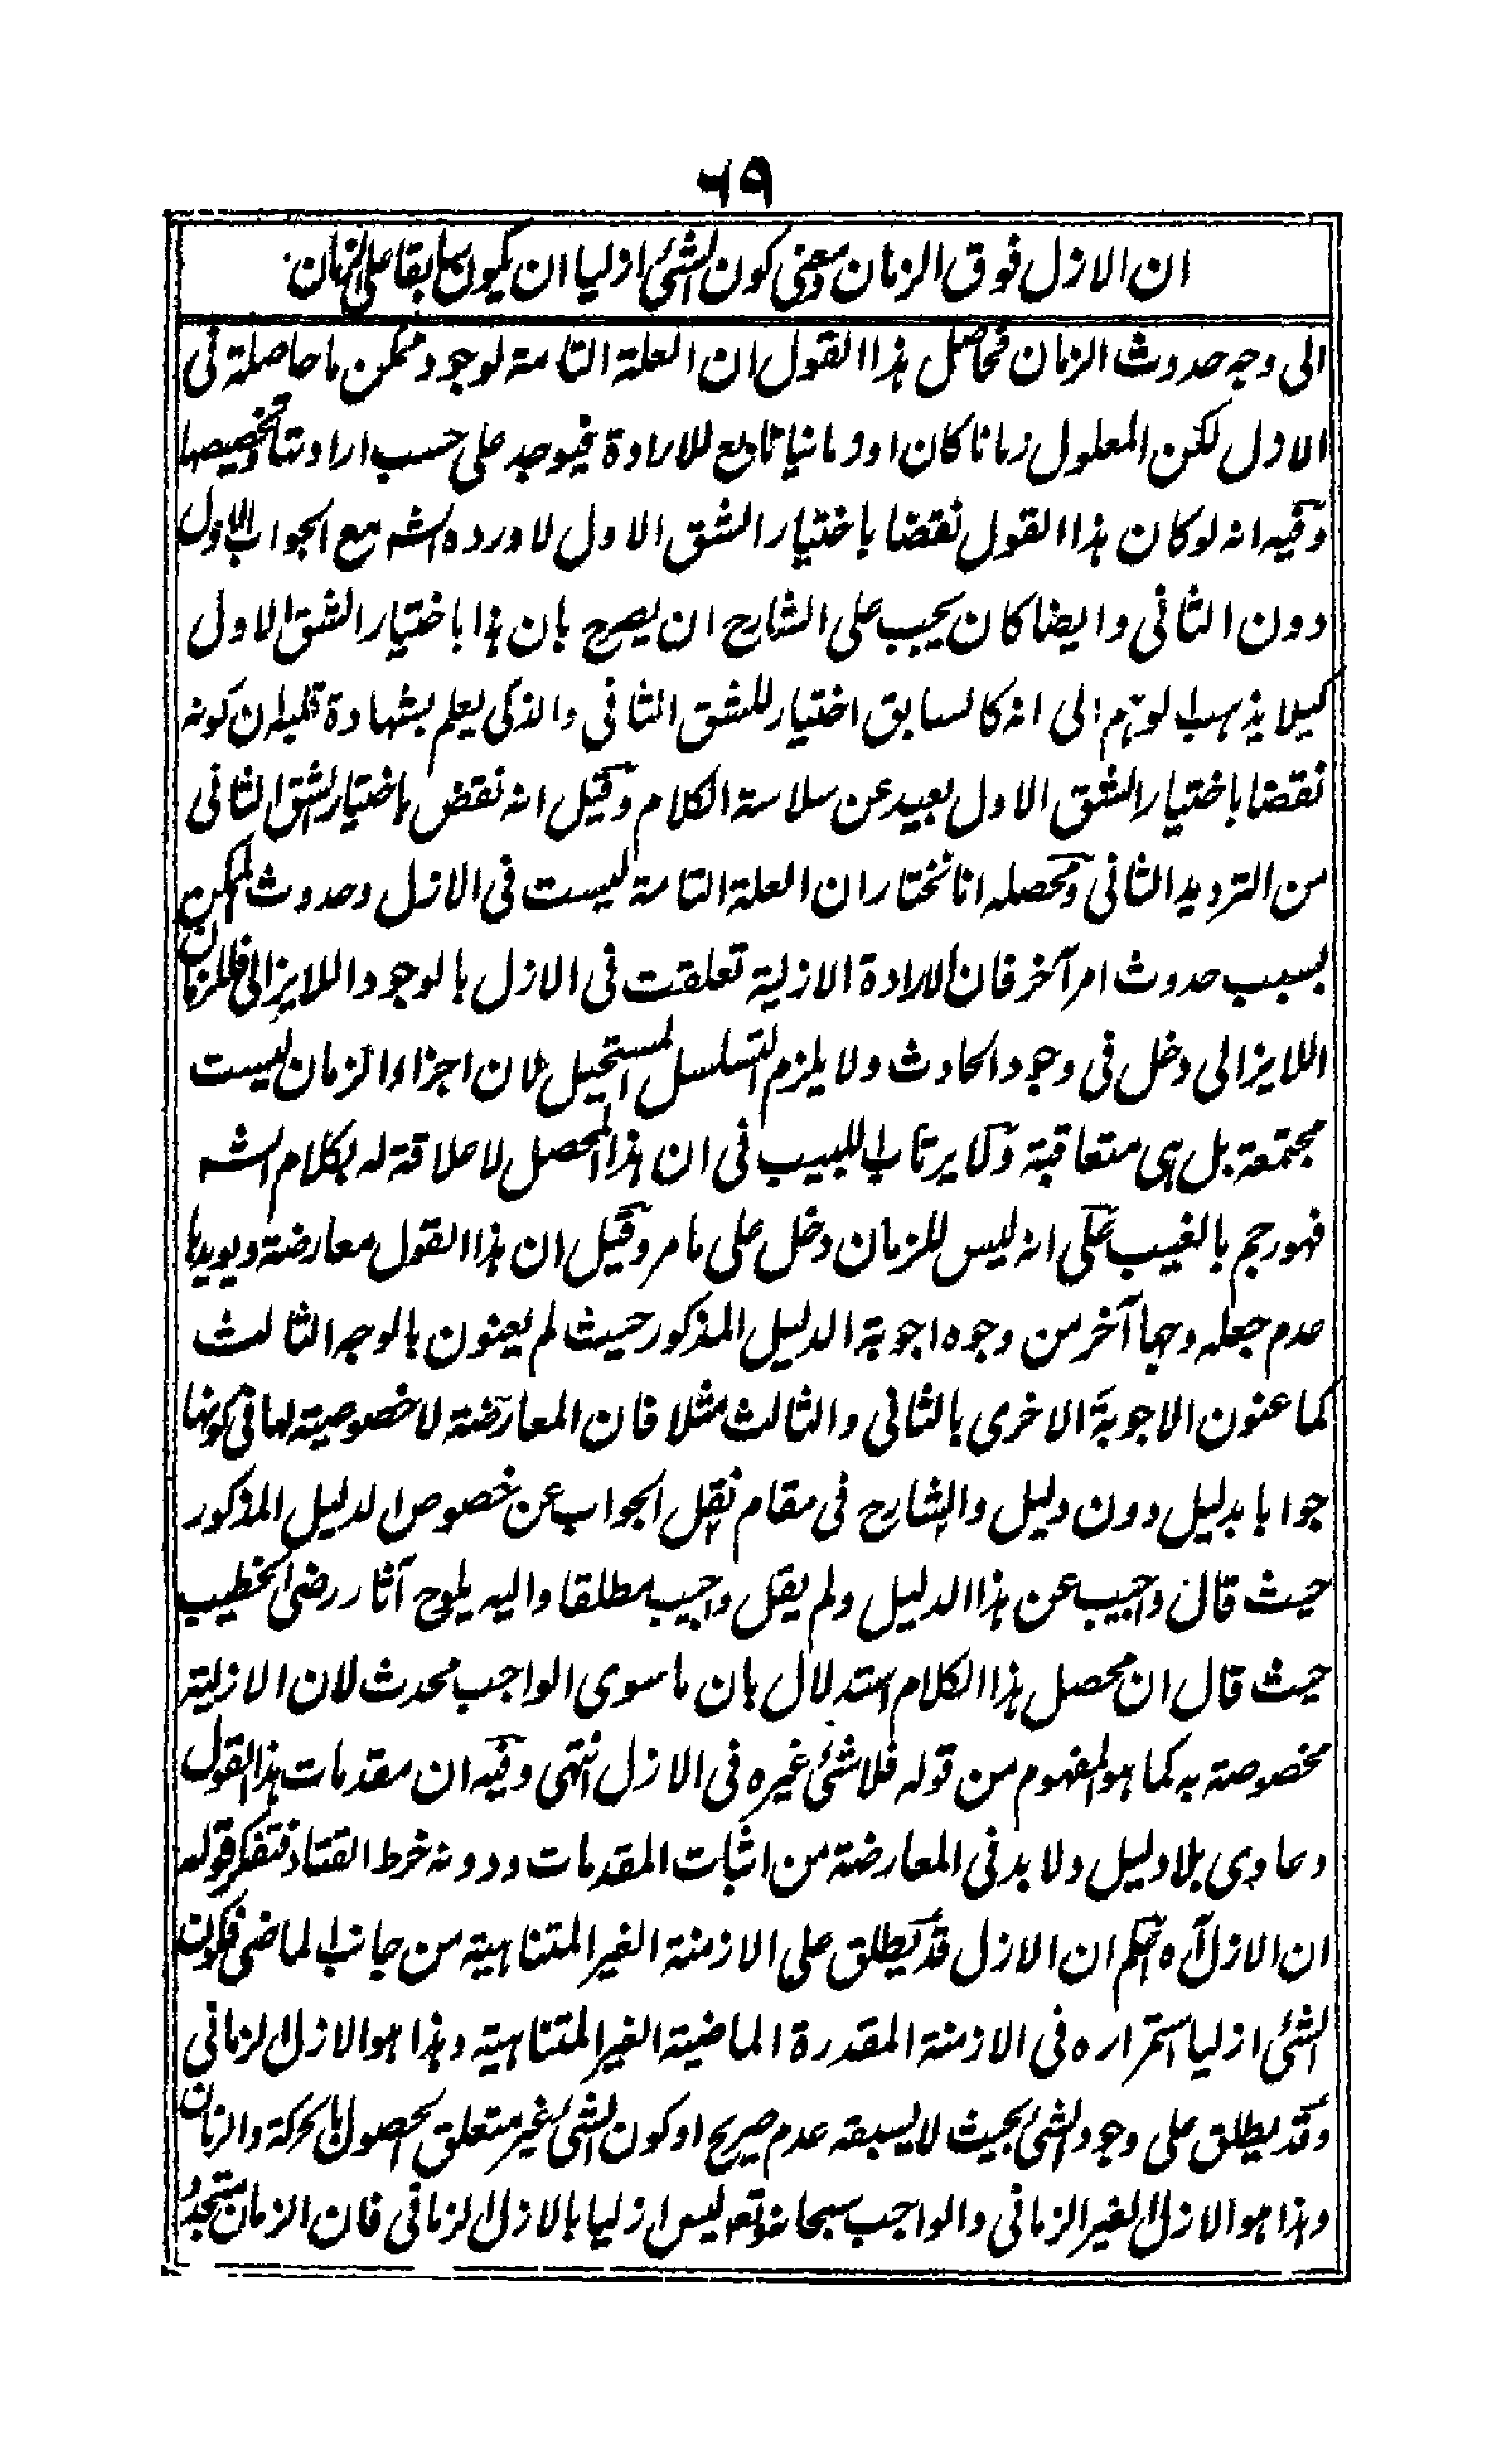 ٦٩
ان الازل فوق الزمان ومعنى كون الشئ ازليا ان يكون سابقا على الزمان
الى وجه حدوث الزمان فحاصل هذا القول ان العلة التامة لوجود ممكن ما حاصلة فى
الازل لكن المعلول زمانا كان او زمانيا تابع للارادة فيوجد على حسب ارادتنا وتخصيصها
وفيه انه لو كان هذا القول نقضا باختيار الشق الاول لاورده الشه مع الجواب الاول
دون الثانى وايضا كان يجب على الشارح ان يصرح بان هذا باختيار الشق الاول
كيلا يذهب الوهم الى انه كالسابق اختيار للشق الثانى والذكى يعلم بشهادة قلبه ان كونه
نقضا باختيار الشق الاول بعيد عن سلاسة الكلام وقيل انه نقض باختيار الشق الثانى
من الترديد الثانى ومحصله انا نختار ان العلة التامة ليست فى الازل وحدوث الممكن
بسبب حدوث امر آخر فان الارادة الازلية تعلقت فى الازل بالوجود اللايزالى فللزمان
اللايزالى دخل فى وجود الحادث ولا يلزم التسلسل المستحيل لان اجزاء الزمان ليست
مجتمعة بل هى متعاقبة ولا يرتاب اللبيب فى ان هذا المحصل لا علاقة له بكلام الشه
فهو رجم بالغيب على انه ليس للزمان دخل على ما مر وقيل ان هذا القول معارضة ويويدها
عدم جعله وجها آخر من وجوه اجوبة الدليل المذكور حيث لم يعنون بالوجه الثالث
كما عنون الاجوبة الاخرى بالثانى والثالث مثلا فان المعارضة لا خصوصية لها فى كونها
جوابا بدليل دون دليل والشارح فى مقام نقل الجواب عن خصوص الدليل المذكور
حيث قال واجيب عن هذا الدليل ولم يقل واجيب مطلقا واليه يلوح آثار رضى الخطيب
حيث قال ان محصل هذا الكلام استدلال بان ما سوى الواجب محدث لان الازلية
مخصوصة به كما هو المفهوم من قوله فلا شئ غيره فى الازل انتهى وفيه ان مقدمات هذا القول
دعاوى بلا دليل ولا بد فى المعارضة من اثبات المقدمات ودونه خرط القتاد فتفكر قوله
ان الازل آه اعلم ان الازل قد يطلق على الازمنة الغير المتناهية من جانب الماضى فكون
الشئ ازليا استمراره فى الازمنة المقدرة الماضية الغير المتناهية وهذا هو الازل الزمانى
وقد يطلق على وجود الشئ بحيث لا يسبقه عدم صريح او كون الشئ غير متعلق الحصول بالحركة والزمان
وهذا هو الازل الغير الزمانى والواجب سبحانه وتعه ليس ازليا بالازل الزمانى فان الزمان متجدد